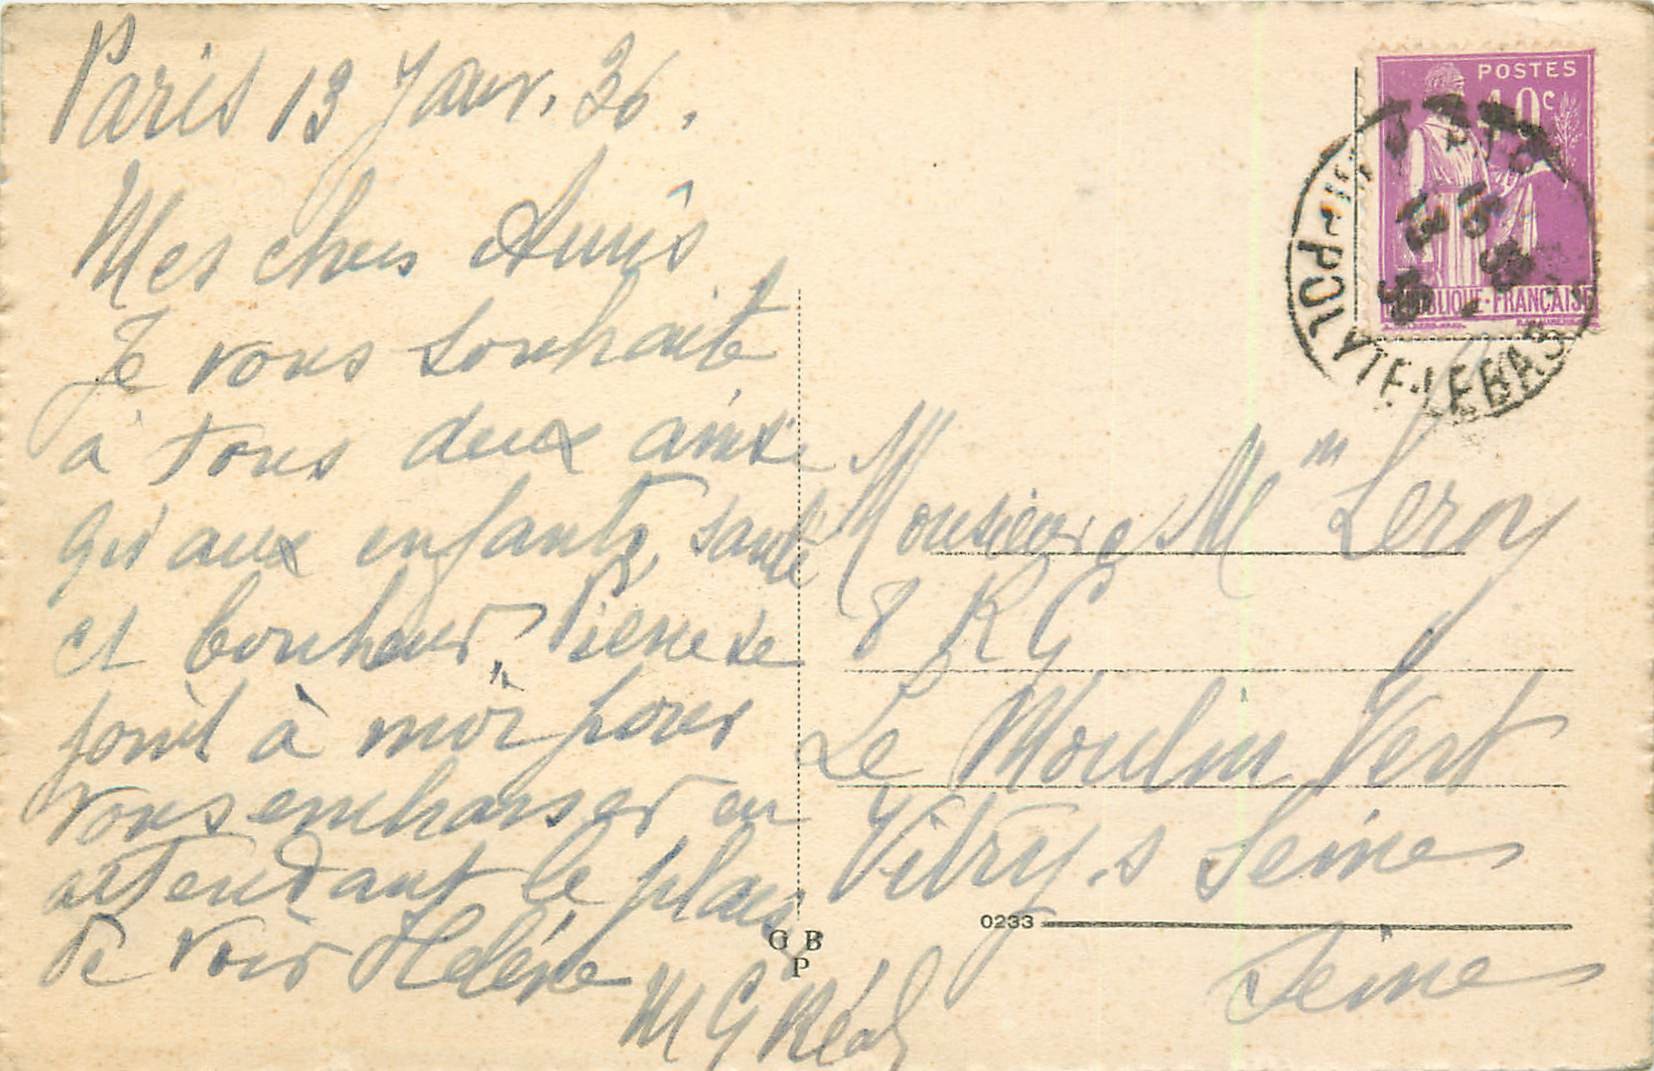 Paris 13 Janv. 36.
Mes chers Amis
Je vous souhaite
à tous deux ainsi
qu'aux enfants, santé
et bonheur, Pierre se
joint à moi pour
vous embrasser en
attendant le plaisir
de voir Hélène
M G Réal
POSTES
40c
REPUBLIQUE-FRANÇAISE
HIPPOLYTE-LEBAS
15 30
13
36
Monsieur e Mm Leroy
8 R G
Le Moulin Vert
Vitry. s Seine
Seine
0233
G B
P